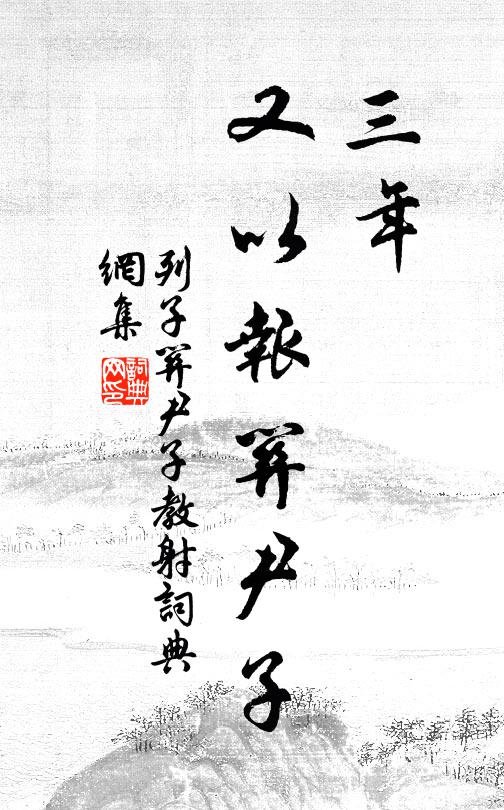 三年
又以報關尹子
列子關尹子教射詞典
網集
詞典
网印